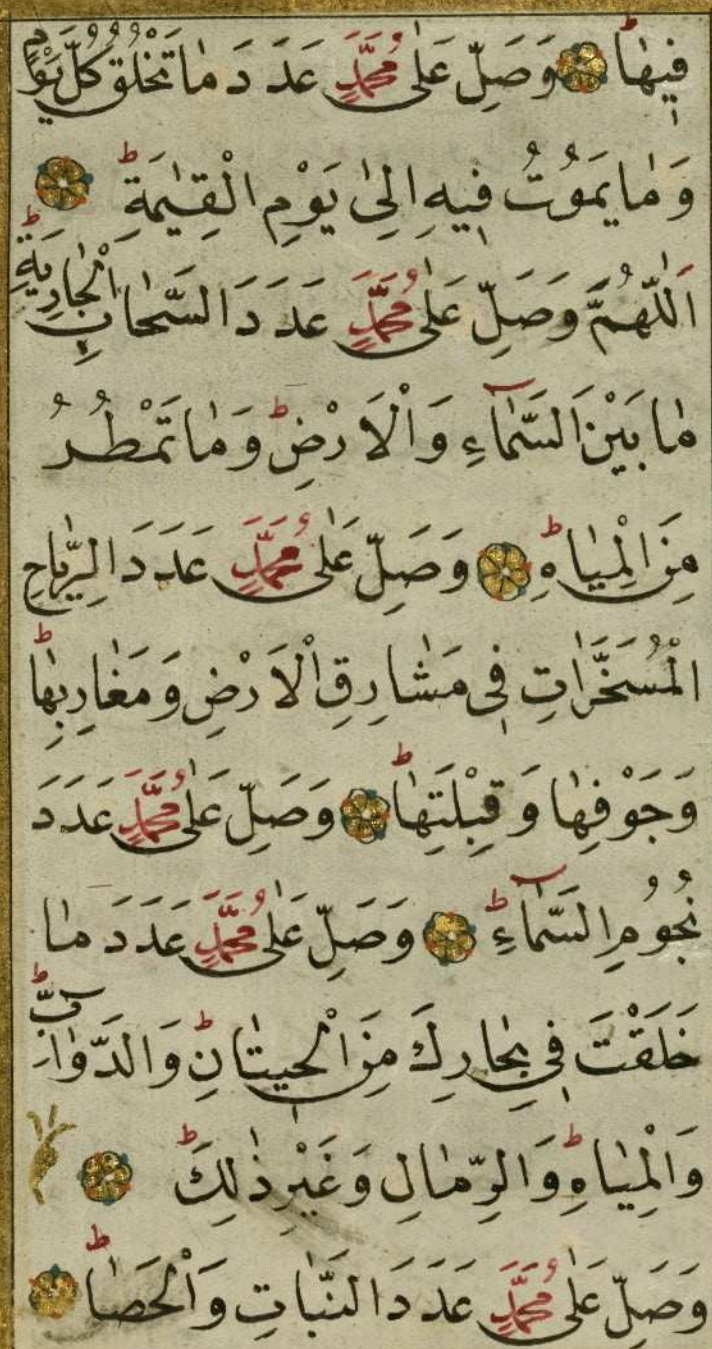 فِيهٰا ط وَصَلِّ عَلٰى مُحَمَّدٍ عَدَدَ مٰا تَخْلُقُ كُلَّ يَوْمٍ
وَمٰا يَمُوتُ فِيهِ اِلىٰ يَوْمِ الْقِيٰمَةِ ط
اَللّٰهُمَّ وَصَلِّ عَلٰى مُحَمَّدٍ عَدَدَ السَّحٰابِ الْجٰارِيَةِ ط
مٰا بَيْنَ السَّمٰٓاءِ وَالْاَرْضِ ط وَمٰا تَمْطُرُ
مِنَ الْمِيٰاهِ ط وَصَلِّ عَلٰى مُحَمَّدٍ عَدَدَ الرِّيٰاحِ
الْمُسَخَّرٰاتِ فِى مَشٰارِقِ الْاَرْضِ وَمَغٰارِبِهٰا ط
وَجَوْفِهٰا وَقِبْلَتِهٰا ط وَصَلِّ عَلٰى مُحَمَّدٍ عَدَدَ
نُجُومِ السَّمٰٓاءِ ط وَصَلِّ عَلٰى مُحَمَّدٍ عَدَدَ مٰا
خَلَقْتَ فِى بِحٰارِكَ مِنَ الْحِيتٰانِ ط وَالدَّوٰآبِّ ط
وَالْمِيٰاهِ ط وَالرِّمٰالِ وَغَيْرِ ذٰلِكَ ط
وَصَلِّ عَلٰى مُحَمَّدٍ عَدَدَ النَّبٰاتِ وَالْحَصٰا ط